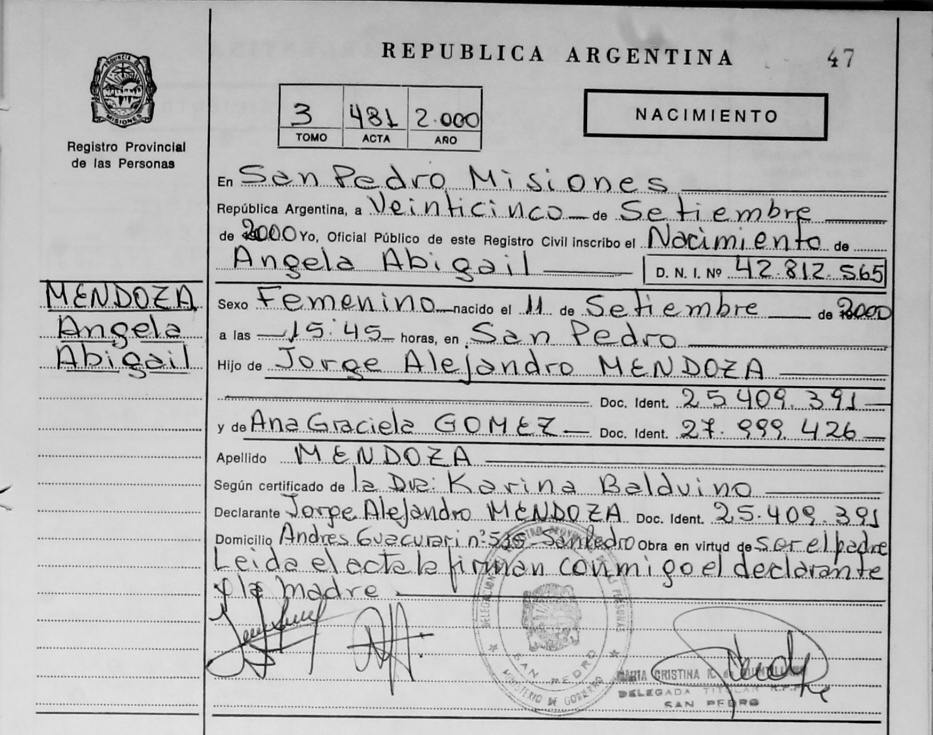 REPUBLICA ARGENTINA
47
PROVINCIA DE MISIONES
Registro Provincial
de las Personas
3 481 2.000
TOMO ACTA AÑO
NACIMIENTO
En San Pedro Misiones
República Argentina, a Veinticinco de Setiembre
de 2000 Yo, Oficial Público de este Registro Civil inscribo el Nacimiento de
Angela Abigail D. N. I. Nº 42.812.565
MENDOZA
Angela
Abigail
Sexo Femenino nacido el 11 de Setiembre de 2000
a las 15:45 horas, en San Pedro
Hijo de Jorge Alejandro MENDOZA
Doc. Ident. 25.409.391
y de Ana Graciela GOMEZ Doc. Ident. 27.999.426
Apellido MENDOZA
Según certificado de la Dra: Karina Balduino
Declarante Jorge Alejandro MENDOZA Doc. Ident. 25.409.391
Domicilio Andres Guacurari nº San Pedro Obra en virtud de ser el padre
Leida el acta la firman conmigo el declarante
y la madre
SAN PEDRO
MINISTERIO DE GOBIERNO
CRISTINA
DELEGADA TITULAR R.P.P.
SAN PEDRO